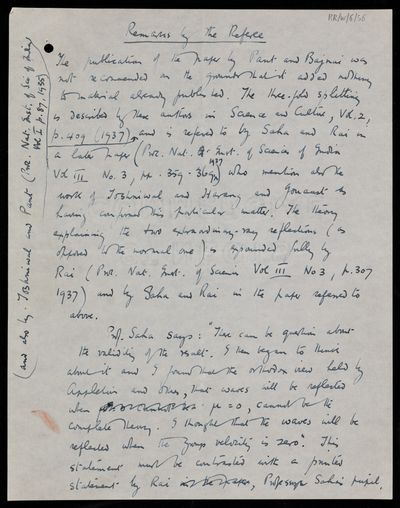 RR/W/6/56
Remarks by the Referee
The publication of the paper by Pant and Bajpai was
not recommended on the grounds that it added nothing
to material already published. The three-fold splitting
is described by these authors in Science and Culture, Vol. 2,
p. 409 (1937), and is referred to by Saha and Rai in
a later paper (Proc. Nat. Inst. of Sciences of India
Vol III No. 3, pp. 359-369, 1937) who mention also the
work of Toshniwal and Harang and as
having confirmed this particular matter. The theory
explaining the two extraordinary-ray reflections (as
opposed to the normal one) is expounded fully by
Rai (Proc. Nat. Inst. of Sciences Vol III No 3, p. 307
1937) and by Saha and Rai in the paper referred to
above.
Prof. Saha says: "There can be question about
the validity of the result. I then began to think
about it and I found that the orthodox view held by
Appleton and others, that waves will be reflected
when μ = 0, cannot be the
complete theory. I thought that the waves will be
reflected when the group velocity is zero". This
statement must be contrasted with a printed
statement by Rai in the paper, Professor Saha's pupil,
(and also by Toshniwal and Pant (Proc. Nat. Inst. of Sci. of India
Vol. I p. 87, 1935)